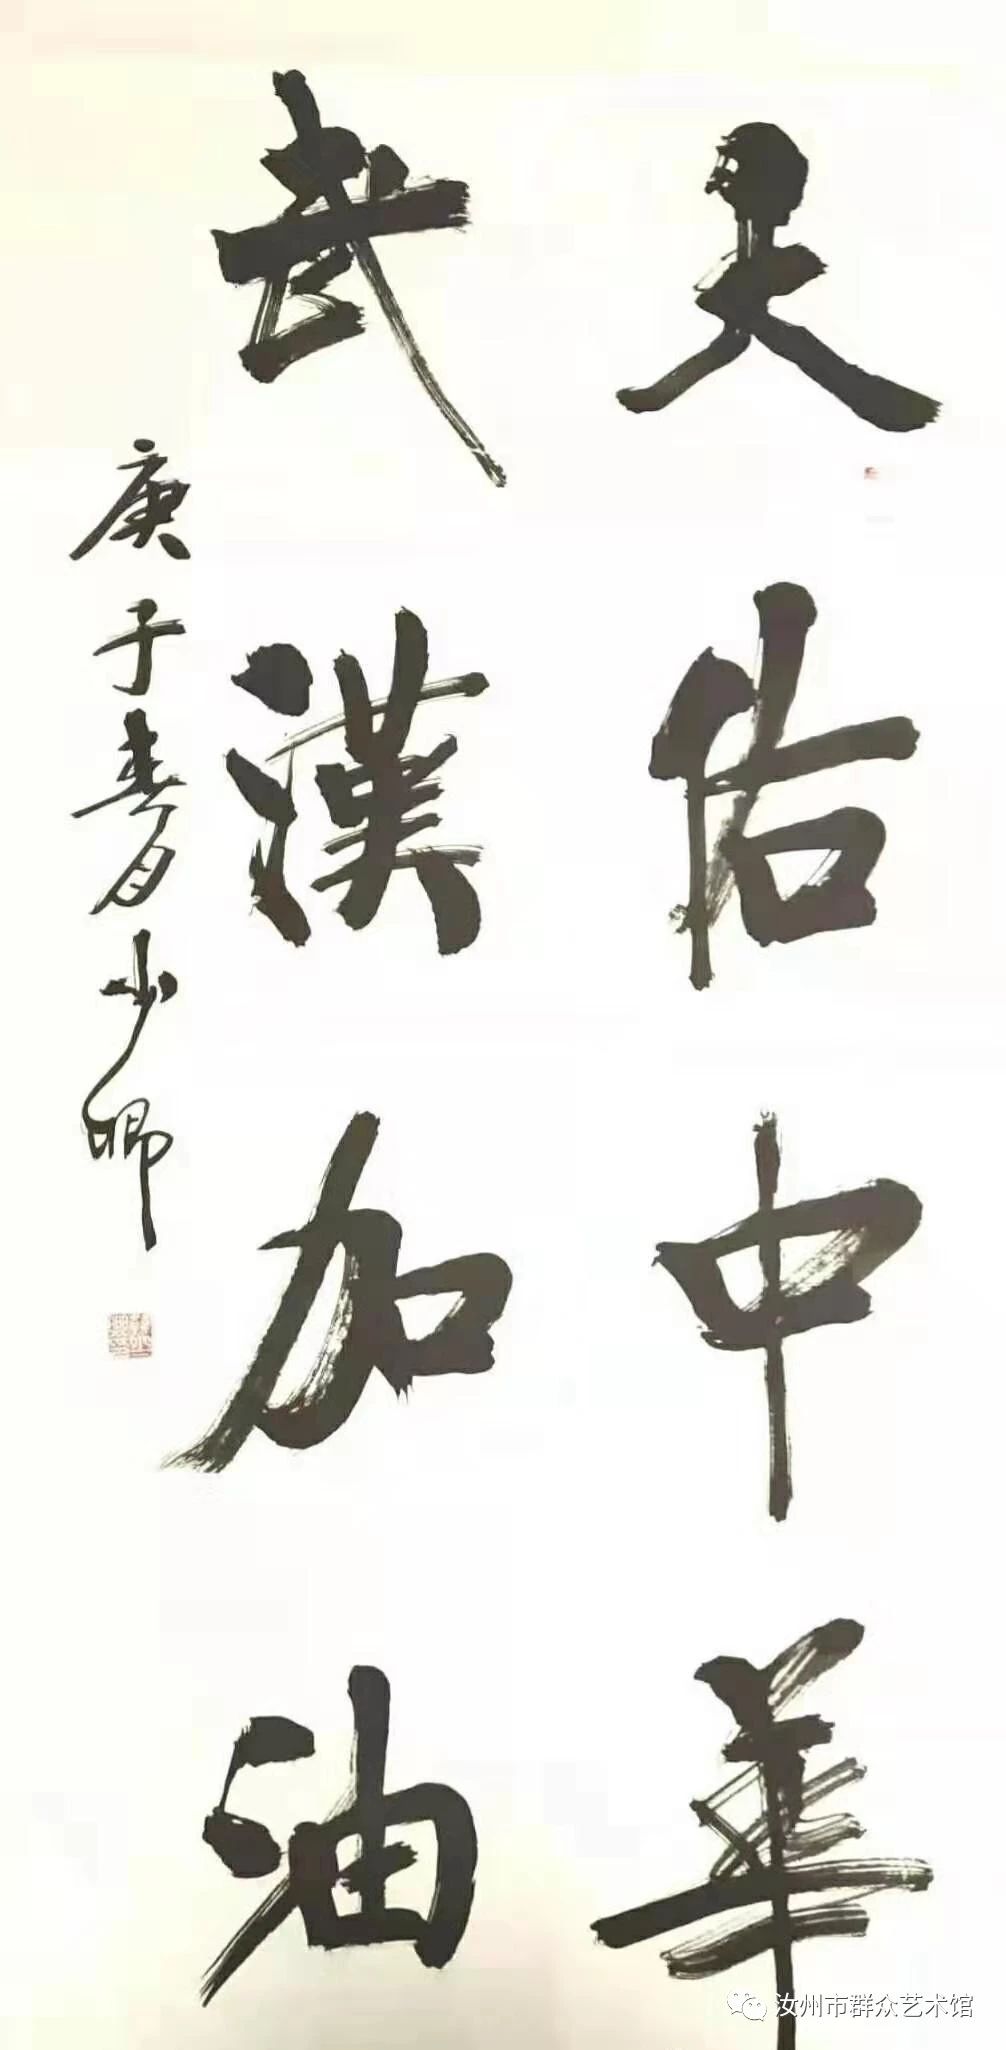 天佑中華
武漢加油
庚子春月少卿
汝州市群众艺术馆